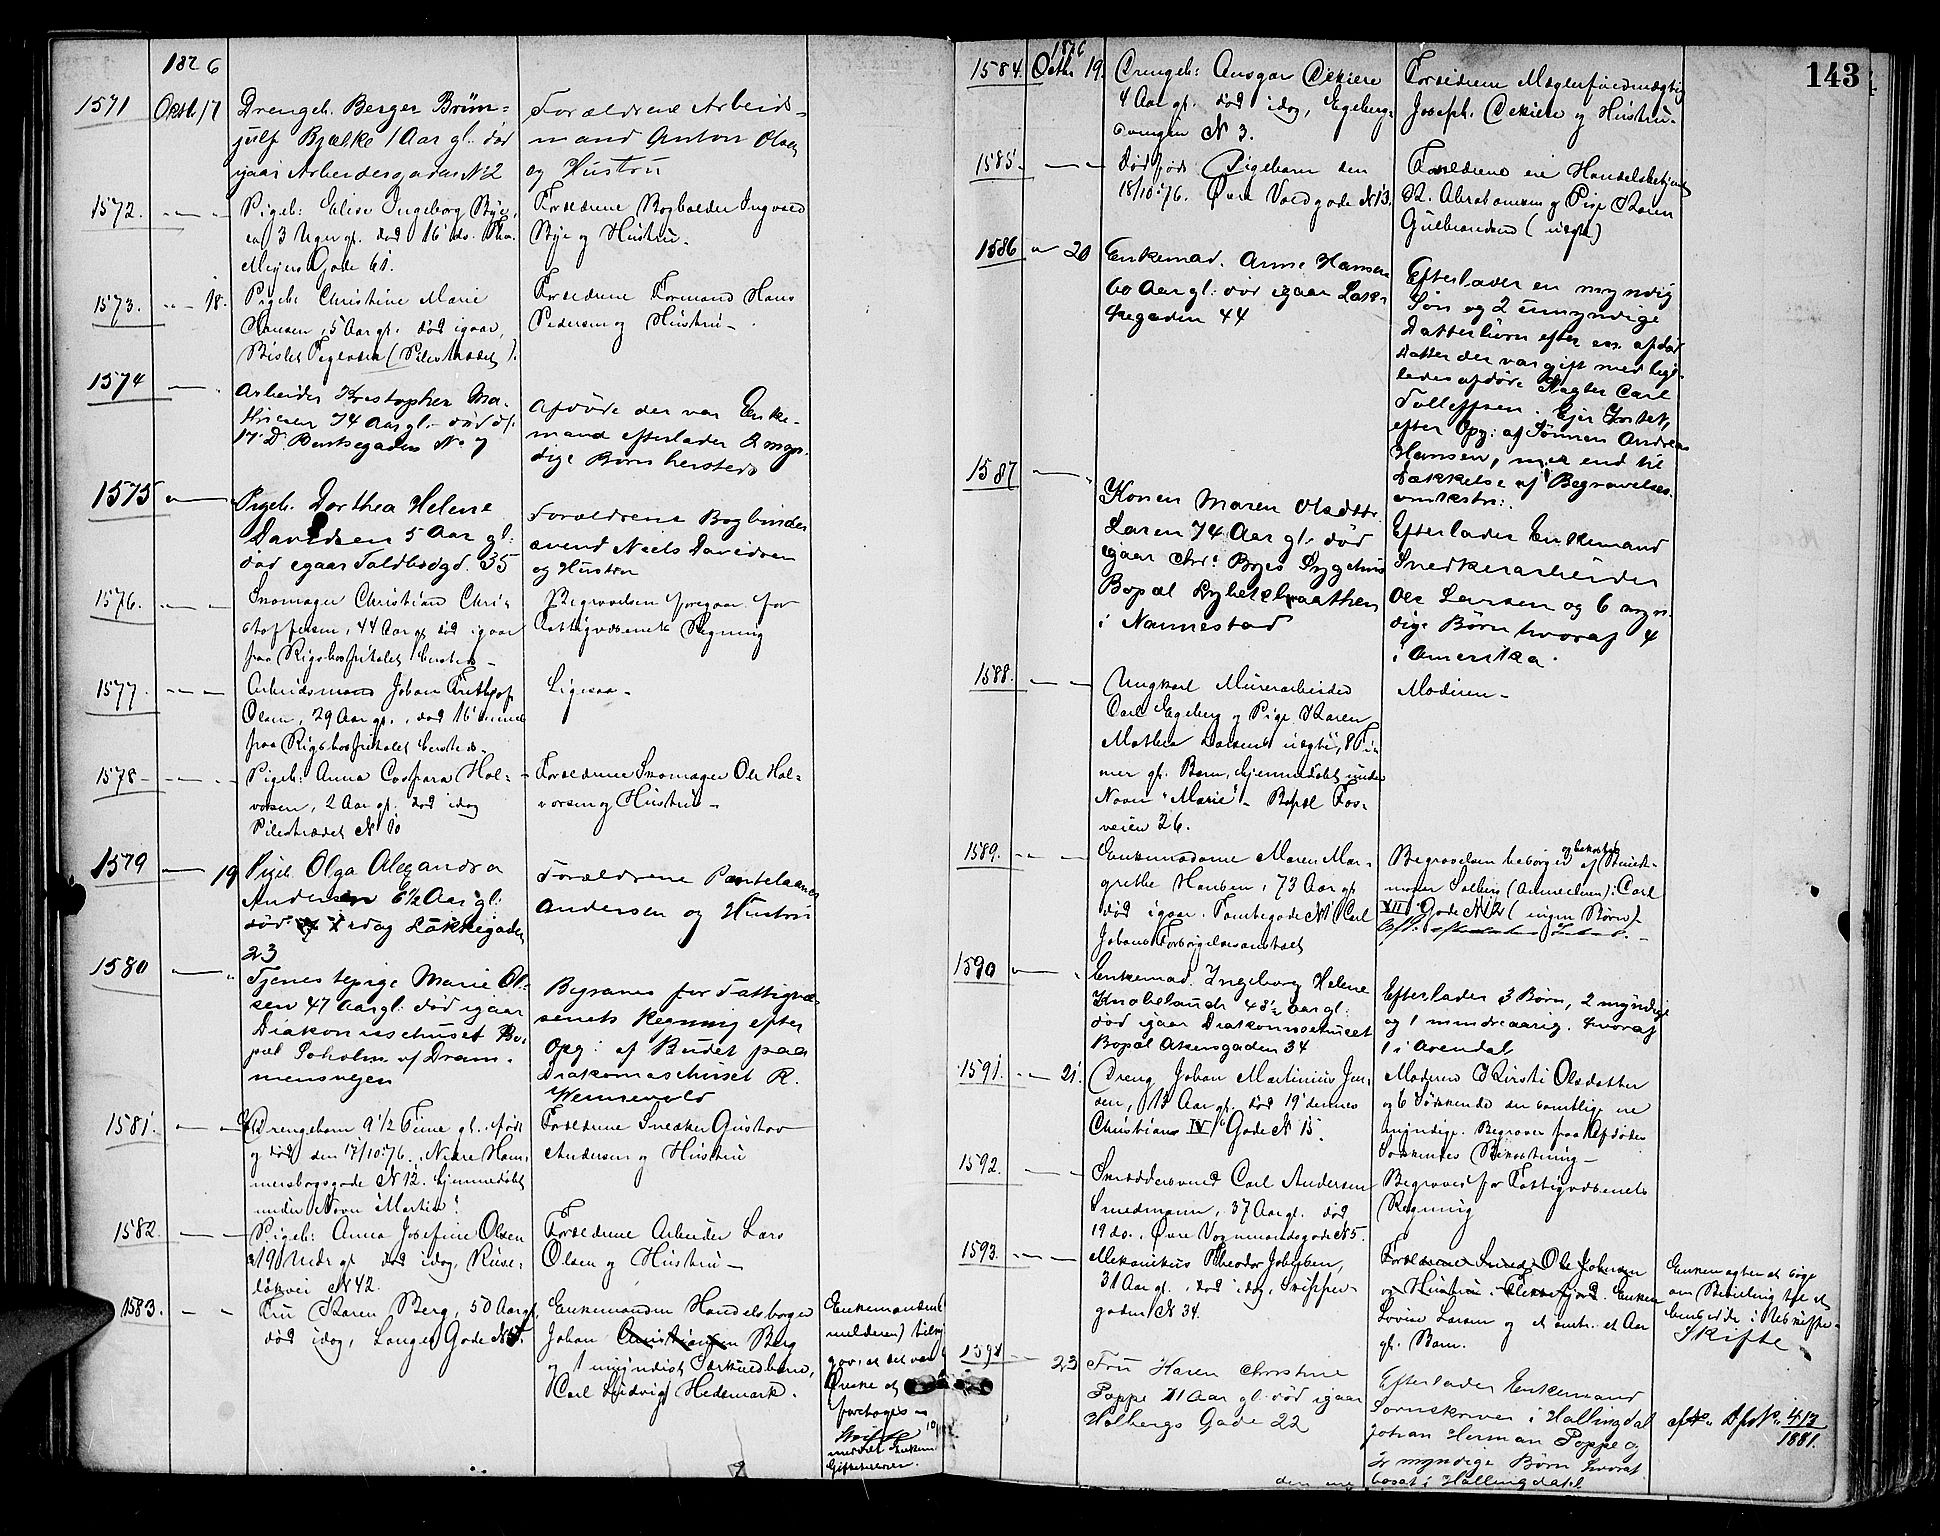 1876
1571 Oktb. 17 Drengeb. Berger Brün=
julf Bjælke 1 Aar gl. død
igaar Arbeidergaden N: 2
Forældrene Arbeids=
mand Anton Olsen
og Hustru
1572. Pigeb: Elise Ingeborg Bye,
3 Uger gl. død 16' ds. Tho.
Meyers Gade 61.
Forældrene Bogholder Ingvald
Bye og Hustru.
1573. 18. Pigeb: Christine Marie
Hansen, 5 Aar gl. død igaar,
Bislet Teglværk (Pilestrædet).
Forældrene Formand Hans
Pedersen og Hustru.
1574 Arbeider Kristopher Ma-
thisen 74 Aar gl. død d.
17. D. Bentsegaden No 7
Afdøde der var Enke-
mand efterlader 2 myn-
dige Børn hersteds
1575 Pigeb. Dorthea Helene
Davidsen 5 Aar gl:
død igaar Toldbodgd. 35
Forældrene Bogbinder
svend Niels Davidsen
og Hustru
1576. Skomager Christian Chri-
stoffersen, 44 Aar gl. død igaar
paa Rigshospitalet hersteds
Begravelsen foregaar for
Fattigvæsenets Regning
1577. Arbeidsmand Johan Frithjof
Olsen, 29 Aar gl., død 16'
paa Rigshospitalet hersteds.
Ligesaa
1578 Pigeb: Anna Caspara Hal-
vorsen, 2 Aar gl. død idag
Pilestrædet N 10
Forældrene Skomager Ole Hal-
vorsen og Hustru
1579 19 Pigeb. Olga Alexandra
Andersen 6½ Aar gl:
død idag Løkkegaden
23
Forældrene Pantelaaner
Andersen og Hustru
1580 Tjenestepige Marie Ol-
sen 47 Aar gl: død igaar
Diakonissehuset Bo-
pæl Soholm v/ Dram-
mensvejen
Begraves for Fattigvæ-
senets Regning efter
Opg: af Budet paa
Diakonissehuset R.
1581. Drengebarn 9½ Time gl. født
og død den 17/10 76. Nedre Ham-
mersborgsgade N 12. hjemmedøbt
under Navn "Martin"
Forældrene Snedker Gustav
Andersen og Hustru
1582. Pigeb: Anna Josefine Olsen
død idag, Ruse-
løkvei N 42.
Forældrene Arbeider Lars
Olsen og Hustru
1583. Fru Karen Berg, 50 Aar gl.
død idag, Langes Gade N 5.
Enkemanden Handelsborger
Johan Christiansen Berg
og 1 umyndigt Særkuldbarn,
Carl Ludvig Hedemark.
Enkemanden
143
1584. 1876 Octbr 19. Drengeb: Ansgar
4 Aar gl. død idag, Egebergs-
vangen N 3.
Forældrene Mæglerfuldmægtig
Joseph og Hustru
1585. Dødfødt Pigebarn den
18/10 76. Øvre Voldgade N 13.
Forældrene ere Handelsbetjent
K. Abrahamsen og Pige Karen
Gulbrandsen (uægte)
1586 20 Enkemad. Anne Hansen
60 Aar gl: død igaar Lak-
kegaden 44
Efterlader en myndig
Søn og 2 umyndige
Datterbørn efter en afdød
Datter der var gift med lige-
ledes afdøde Slagter Carl
Tollefsen. Ejer Intet,
efter Opg: af Sønnen Andreas
Hansen, mer end til
Dækkelse af Begravelses
omkostn:.
1587 Konen Maren Olsdttr.
Larsen 74 Aar gl. død
igaar Chr: Byes Sygehus
Bopæl
i Nannestad
Efterlader Enkemand
Snedkerarbeider
Ole Larsen og 6 myn-
dige Børn hvoraf 4
i Amerika.
1588. Ungkarl Murerarbeider
Carl Egeberg og Pige Karen
Mathea Larsens uægte, 8 Ti-
mer gl. Barn, hjemmedøbt under
Navn "Marie" Bopæl Fos-
veien 26.
Moderen
1589. Enkemadame Maren Mar-
grethe Hansen, 73 Aar gl.
død igaar. Tomtegade N 1 Carl
Johans Forsørgelsesanstalt
Begravelsen besørges og bekostes af
Solberg (Anmelderen): Carl
XII Gade N 12 (ingen Børn)
1590 Enkemad. Ingeborg Helene
Knobelauch 48½ Aar gl:
død igaar Diakonissehuset
Bopæl Akersgaden 34
Efterlader 3 Børn, 2 myndige
og 1 mindreaarig, hvoraf
1 i Arendal
1591. 21. Dreng Johan Martinius Jen-
sen, 13 Aar gl. død 19' dennes
Christian IV Gade N 15.
Moderen Kirsti Olsdatter
og 6 Søskende der samtlige ere
myndige. Begraves paa Afdødes
Søskendes Bekostning
1592. Skræddersvend Carl Andersen
Smedmann, 37 Aar gl. død
19 ds. Øvre Vognmandsgade N 5.
Begraves for Fattigvæsenets
Regning
1593. Mekanikus Theodor Johnsen,
31 Aar gl., død idag, Skipper-
gaden N 34.
Forældrene Smed Ole Johnsen
og Hustru i Flekkefjord. Enken
Lovise Larsen og et Aar
gl. Barn.
Enken agter at søge
om Bevilling til at
hensidde i Uskiftet
Skifte
1594 23 Fru Karen Christine
Poppe 71 Aar gl: død igaar
Holbergs Gade 22
Efterlader Enkemand
Sorenskriver i Hallingdal
Johan Herman Poppe og
myndige Børn hvoraf
bosat i Hallingdal
413
1881.